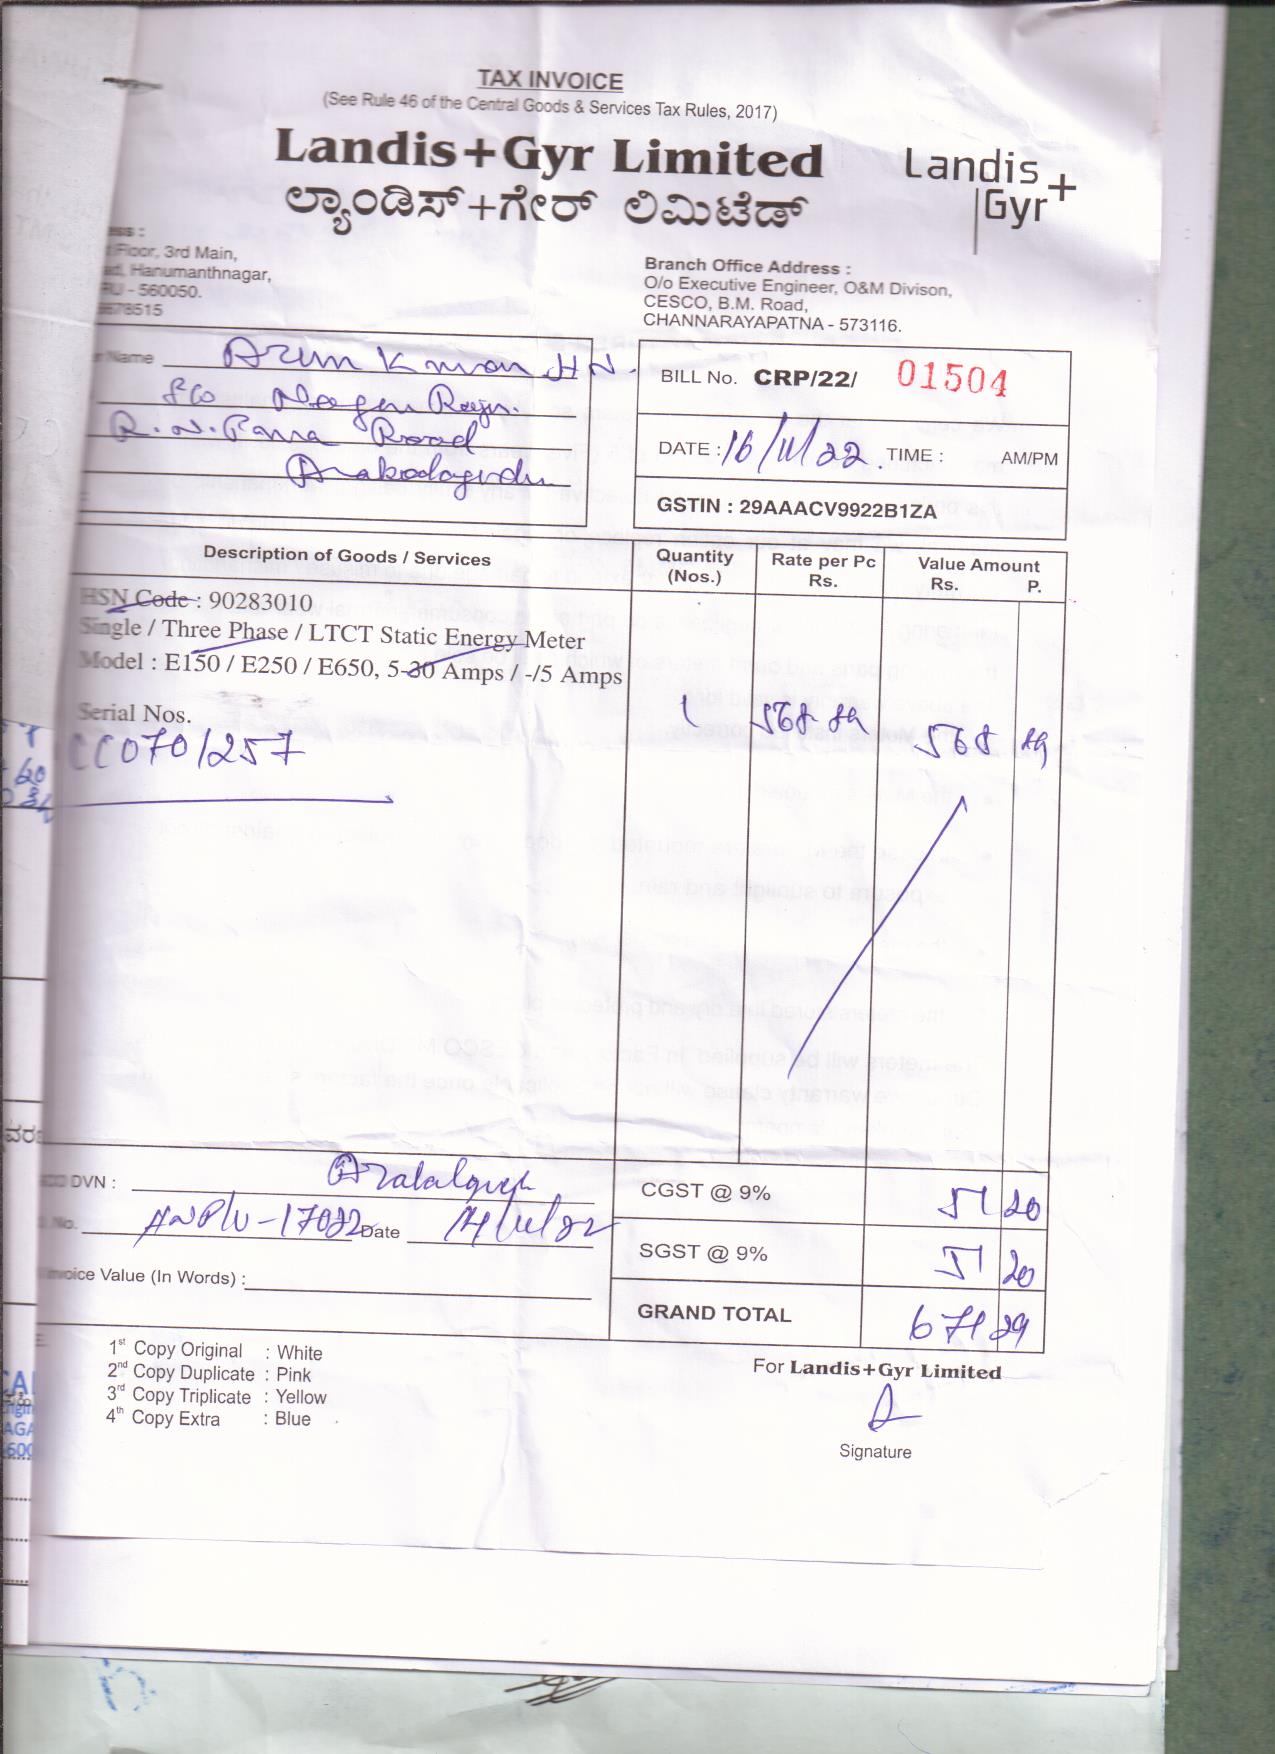 TAX INVOICE
(See Rule 46 of the Central Goods & Services Tax Rules, 2017)
Landis+Gyr Limited
ಲ್ಯಾಂಡಿಸ್+ಗೇರ್ ಲಿಮಿಟೆಡ್
Landis
Gyr+
Floor, 3rd Main,
Hanumanthnagar,
- 560050.
78515
Branch Office Address :
O/o Executive Engineer, O&M Divison,
CESCO, B.M. Road,
CHANNARAYAPATNA - 573116.
Name Arun Kumar H N.
S/o Nagaraju.
Road
BILL No. CRP/22/ 01504
DATE : 16/11/22 TIME : AM/PM
GSTIN : 29AAACV9922B1ZA
Description of Goods / Services Quantity (Nos.) Rate per Pc Rs. Value Amount Rs. P.
HSN Code : 90283010
Single / Three Phase / LTCT Static Energy Meter
Model : E150 / E250 / E650, 5-30 Amps / -/5 Amps
Serial Nos.
CC0701257 1 568 89 568 89
DVN :
No. Date 14/11/22
Invoice Value (In Words) :
CGST @ 9% 51 20
SGST @ 9% 51 20
GRAND TOTAL 671 29
1st Copy Original : White
2nd Copy Duplicate : Pink
3rd Copy Triplicate : Yellow
4th Copy Extra : Blue
For Landis+Gyr Limited
Signature